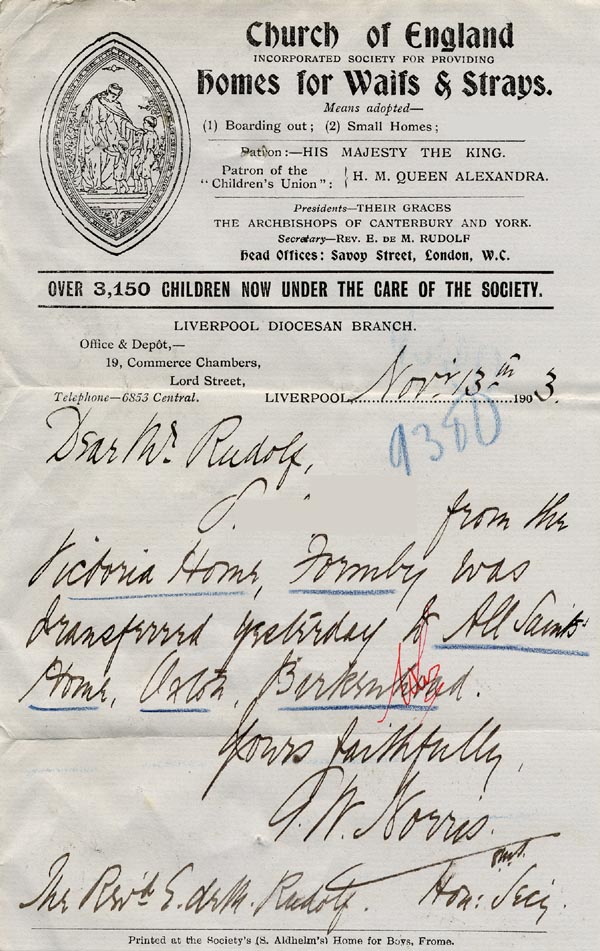 Church of England
INCORPORATED SOCIETY FOR PROVIDING
Homes for Waifs & Strays.
Means adopted—
(1) Boarding out; (2) Small Homes;
Patron:—HIS MAJESTY THE KING.
Patron of the "Children's Union": } H. M. QUEEN ALEXANDRA.
Presidents—THEIR GRACES
THE ARCHBISHOPS OF CANTERBURY AND YORK.
Secretary—REV. E. DE M. RUDOLF
Head Offices: Savoy Street, London, W.C.
OVER 3,150 CHILDREN NOW UNDER THE CARE OF THE SOCIETY.
LIVERPOOL DIOCESAN BRANCH.
Office & Depôt,—
19, Commerce Chambers,
Lord Street,
Telephone—6853 Central.
LIVERPOOL, Novr 13th 1903.
9380
Dear Mr. Rudolf,
from the
Victoria Home, Formby was
transferred yesterday to All Saints'
Home, Oxton, Birkenhead.
Yours faithfully,
G. W. Norris.
Hon: Secy.
The Revd. E. de M. Rudolf.
Printed at the Society's (S. Aldhelm's) Home for Boys, Frome.